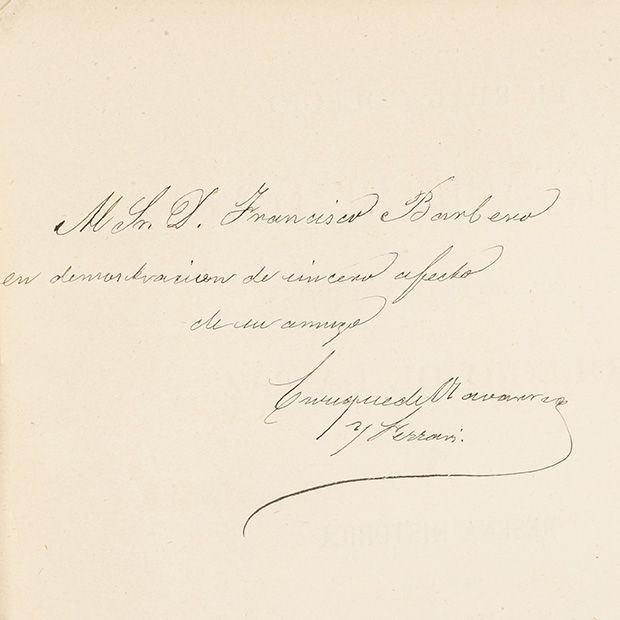 Al Sr. D. Francisco Barbero
en demostracion de sincero afecto
de su amigo
Enrique de Navarra
y Ferrari.